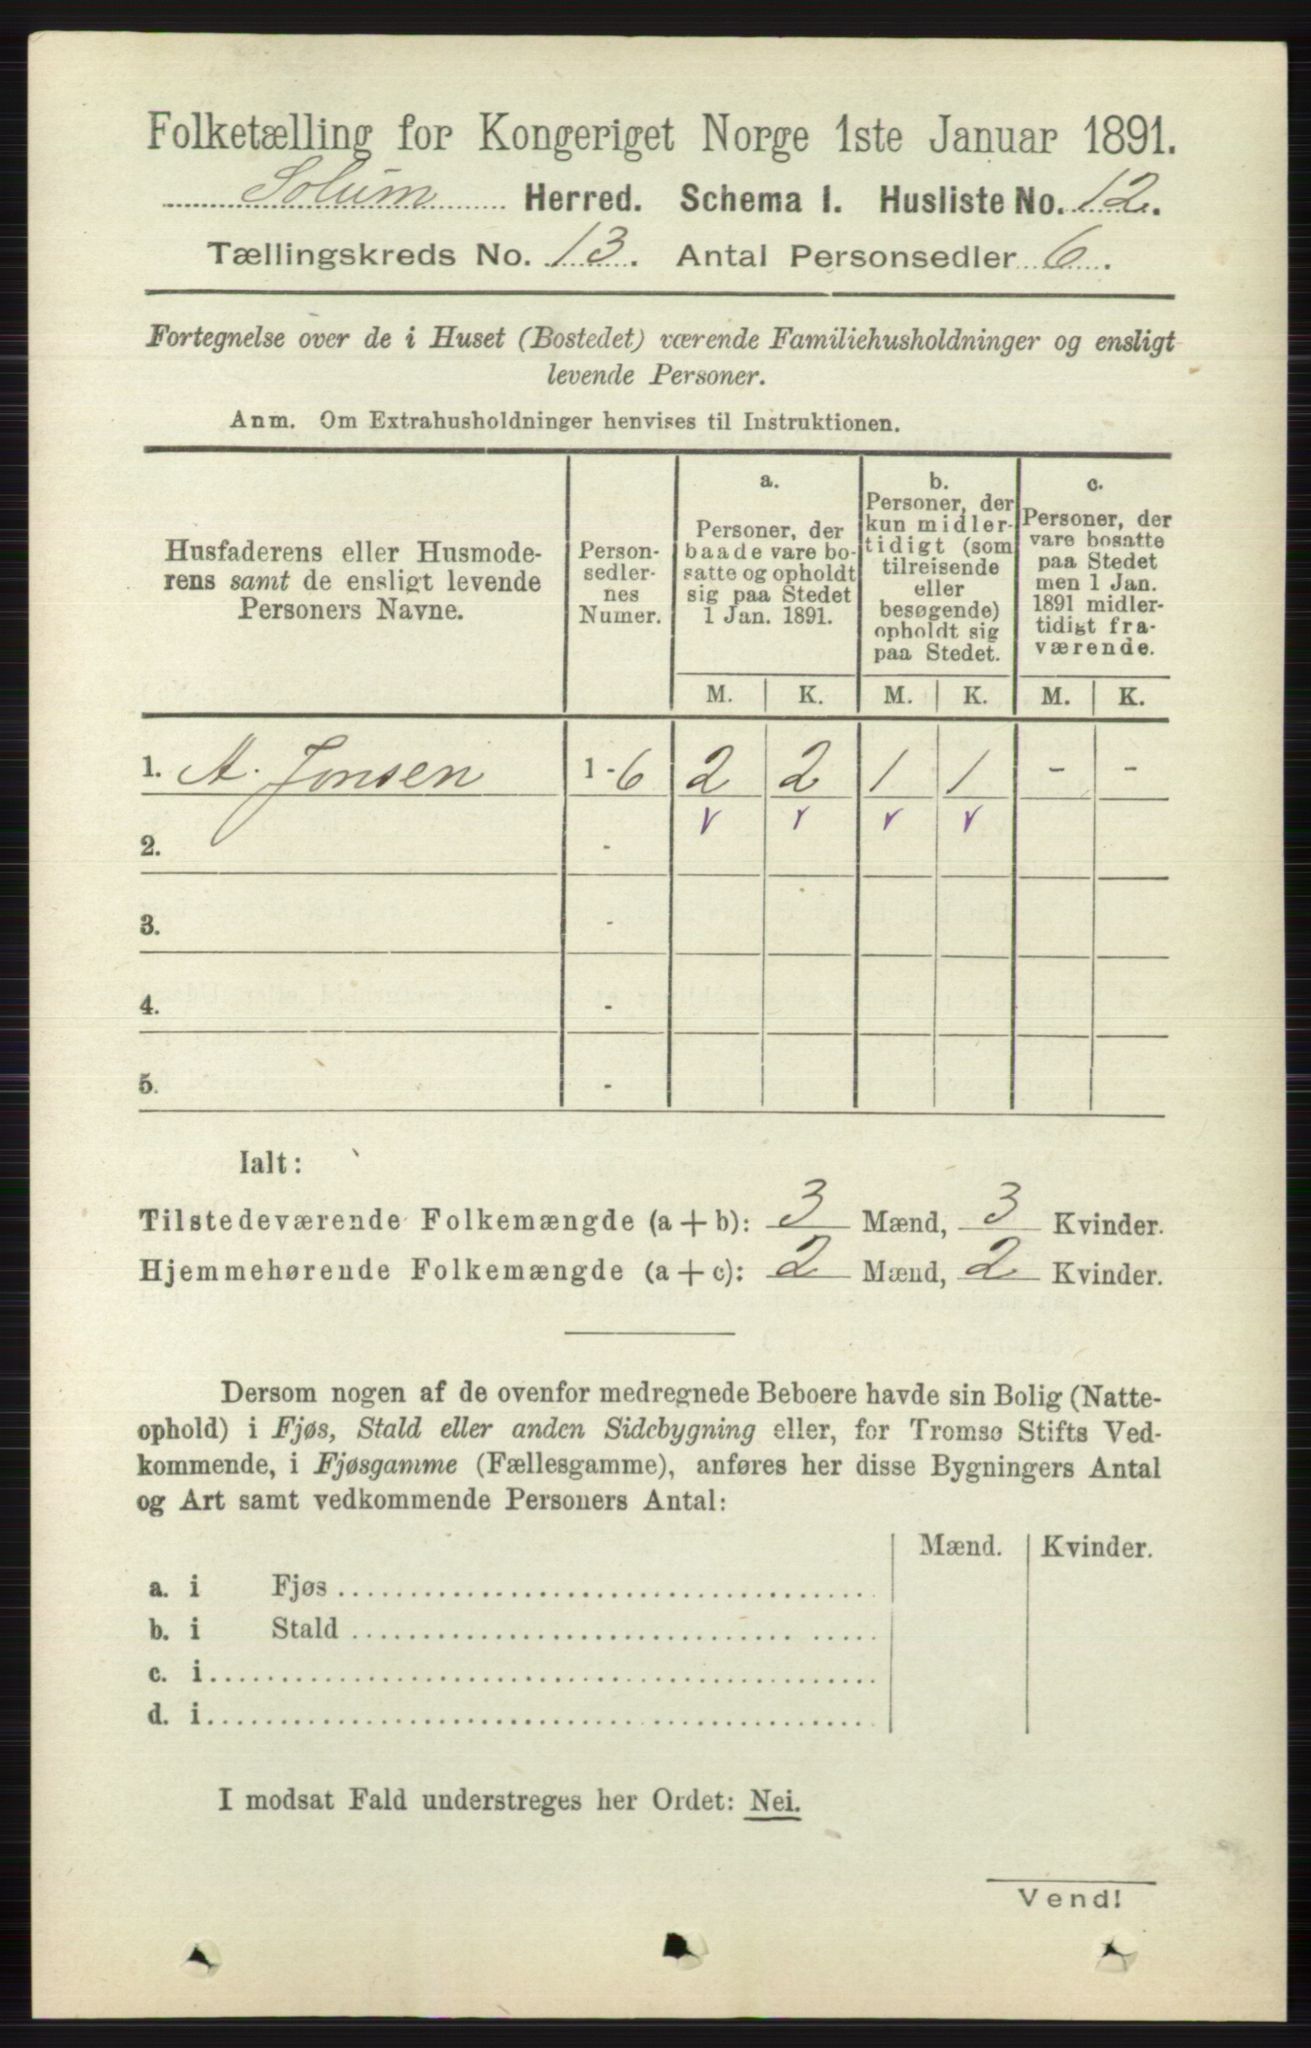 Folketælling for Kongeriget Norge 1ste Januar 1891.
Solum Herred. Schema I. Husliste No. 12.
Tællingskreds No. 13. Antal Personsedler 6.
Fortegnelse over de i Huset (Bostedet) værende Familiehusholdninger og ensligt
levende Personer.
Anm. Om Extrahusholdninger henvises til Instruktionen.
Husfaderens eller Husmode-
rens samt de ensligt levende
Personers Navne.
Person-
sedler-
nes
Numer.
a.
Personer, der
baade vare bo-
satte og opholdt
sig paa Stedet
1 Jan. 1891.
b.
Personer, der
kun midler-
tidigt (som
tilreisende
eller
besøgende)
opholdt sig
paa Stedet.
c.
Personer, der
vare bosatte
paa Stedet
men 1 Jan.
1891 midler-
tidigt fra-
værende.
M. K. M. K. M. K.
1. A. Jonsen 1-6 2 2 1 1 - -
2. -
3. -
4. -
5. -
Ialt:
Tilstedeværende Folkemængde (a + b): 3 Mænd, 3 Kvinder.
Hjemmehørende Folkemængde (a + c): 2 Mænd, 2 Kvinder.
Dersom nogen af de ovenfor medregnede Beboere havde sin Bolig (Natte-
ophold) i Fjøs, Stald eller anden Sidebygning eller, for Tromsø Stifts Ved-
kommende, i Fjøsgamme (Fællesgamme), anføres her disse Bygningers Antal
og Art samt vedkommende Personers Antal:
Mænd. Kvinder.
a. i Fjøs
b. i Stald
c. i
d. i
I modsat Fald understreges her Ordet: Nei.
Vend!